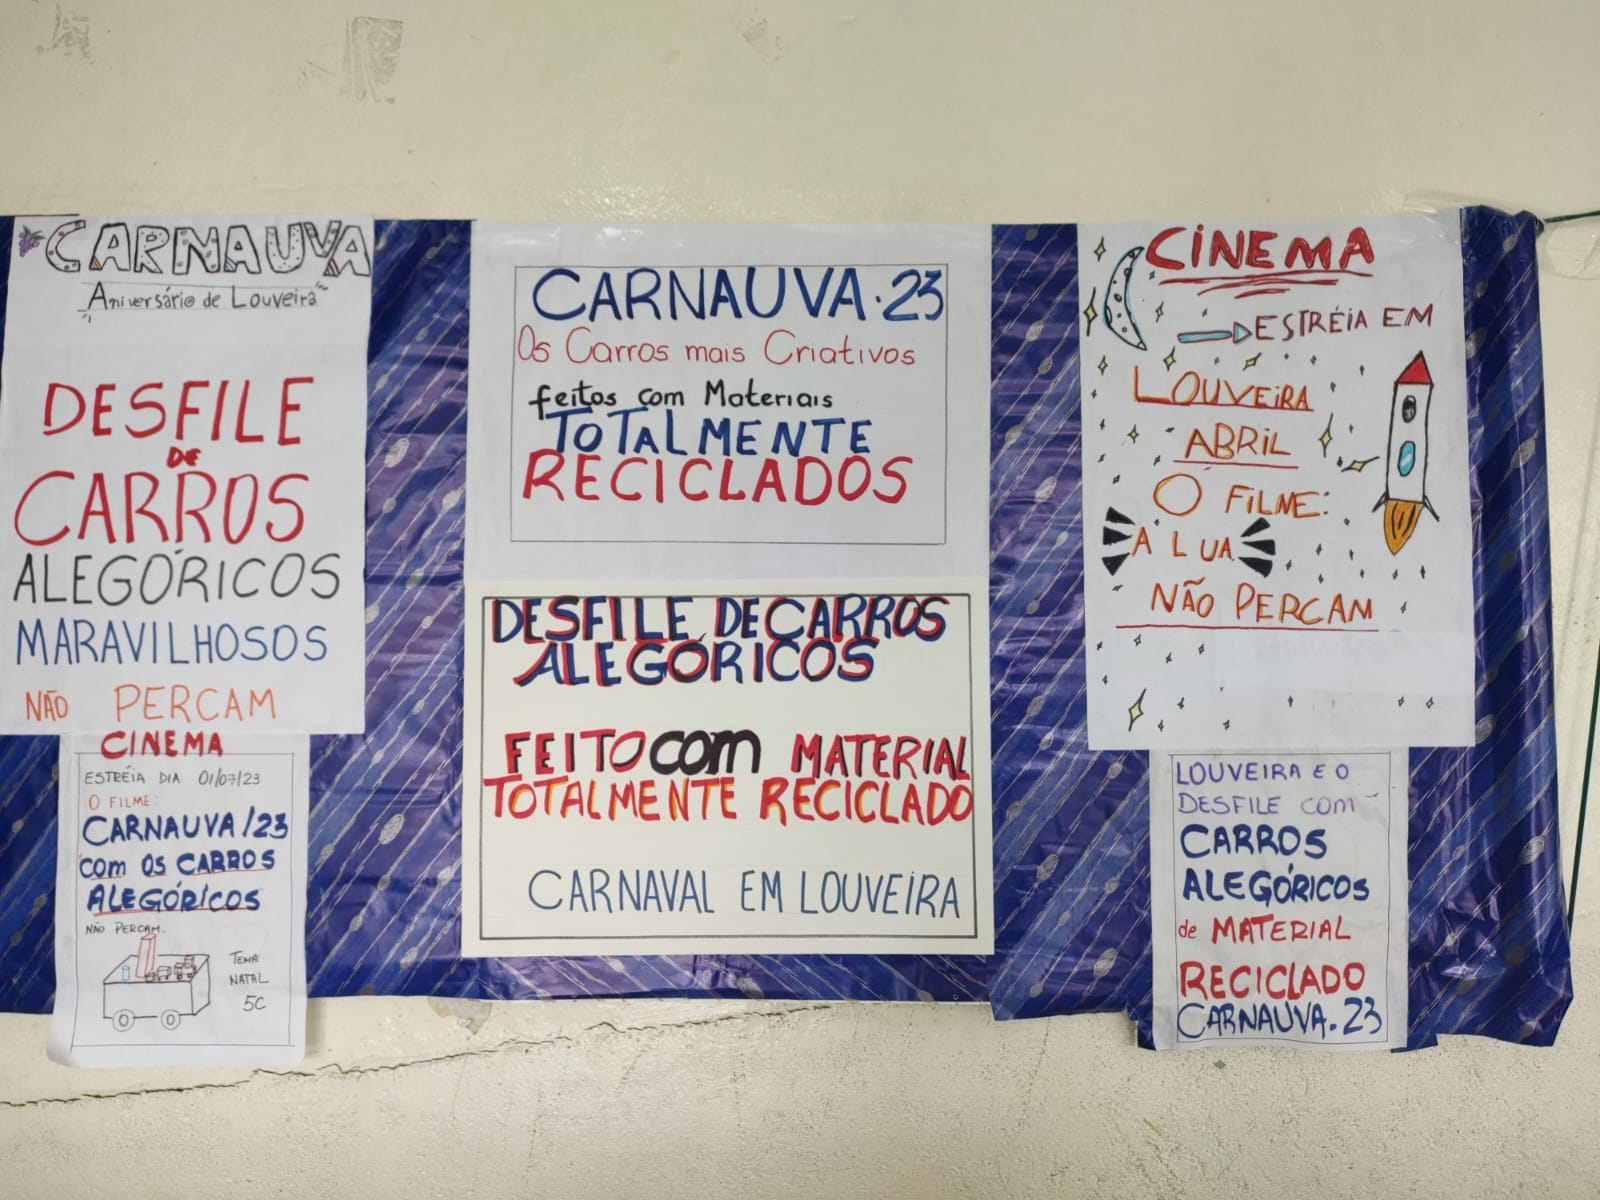 CARNAUVA
Aniversário de Louveira
DESFILE
DE
CARROS
ALEGÓRICOS
MARAVILHOSOS
NÃO PERCAM
CINEMA
ESTRÉIA DIA 01/07/23
O FILME:
CARNAUVA/23
com OS CARROS
ALEGÓRICOS
NÃO PERCAM.
TEMA:
NATAL
5C
CARNAUVA.23
Os Carros mais Criativos
feitos com Materiais
TOTALMENTE
RECICLADOS
DESFILE DE CARROS
ALEGÓRICOS
FEITO com MATERIAL
TOTALMENTE RECICLADO
CARNAVAL EM LOUVEIRA
CINEMA
ESTRÉIA EM
LOUVEIRA
ABRIL
O FILNE:
A LUA
NÃO PERCAM
LOUVEIRA E O
DESFILE COM
CARROS
ALEGÓRICOS
de MATERIAL
RECICLADO
CARNAUVA.23